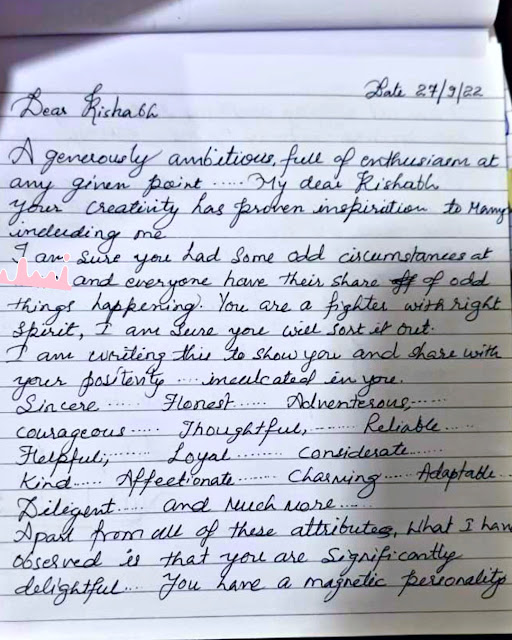 Date 27/9/22
Dear Rishabh
A generously ambitious, full of enthusiasm at
any given point ..... My dear Rishabh
your creativity has proven inspiration to Many
including me
I am sure you had some odd circumstances at
and everyone have their share of odd
things happening. You are a fighter with right
spirit, I am sure you will sort it out.
I am writing this to show you and share with
your positivity .... inculcated in you.
Sincere ..... Honest ..... Adventerous,.....
courageous ..... Thoughtful, ...... Reliable ....
Helpful; ...... Loyal ...... Considerate .....
Kind .... Affectionate .... Charming .... Adaptable ..
Diligent ..... and much more ....
Apart from all of these attributes, what I have
observed is that you are significantly
delightful .... You have a magnetic personality